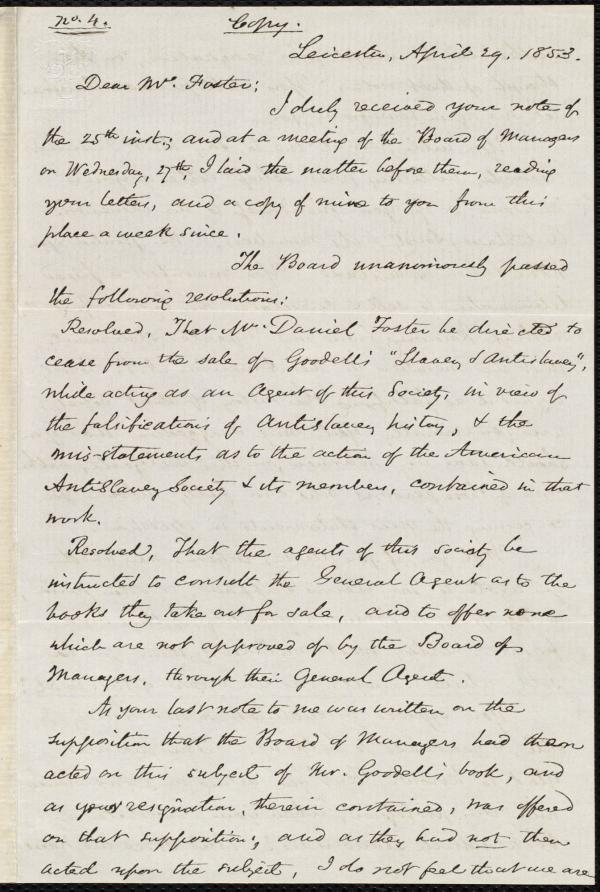 No. 4.
Copy.
Leicester, April 29. 1853.
Dear Mr. Foster;
I duly received your note of
the 25th inst.; and at a meeting of the Board of Managers
on Wednesday, 27th, I laid the matter before them, reading
your letters, and a copy of mine to you from this
place a week since.
The Board unanimously passed
the following resolutions:
Resolved, That Mr. Daniel Foster be directed to
cease from the sale of Goodell's "Slavery & Antislavery",
while acting as an Agent of this Society, in view of
the falsifications of Antislavery history, & the
mis-statements as to the action of the American
AntiSlavery Society & its members, contained in that
work.
Resolved, That the agents of this society be
instructed to consult the General Agent as to the
books they take out for sale, and to offer none
which are not approved of by the Board of
Managers, through their General Agent.
As your last note to me was written on the
supposition that the Board of Managers had then
acted on this subject of Mr. Goodell's book, and
as your resignation, therein contained, was offered
on that supposition; and as they had not then
acted upon the subject, I do not feel that we are